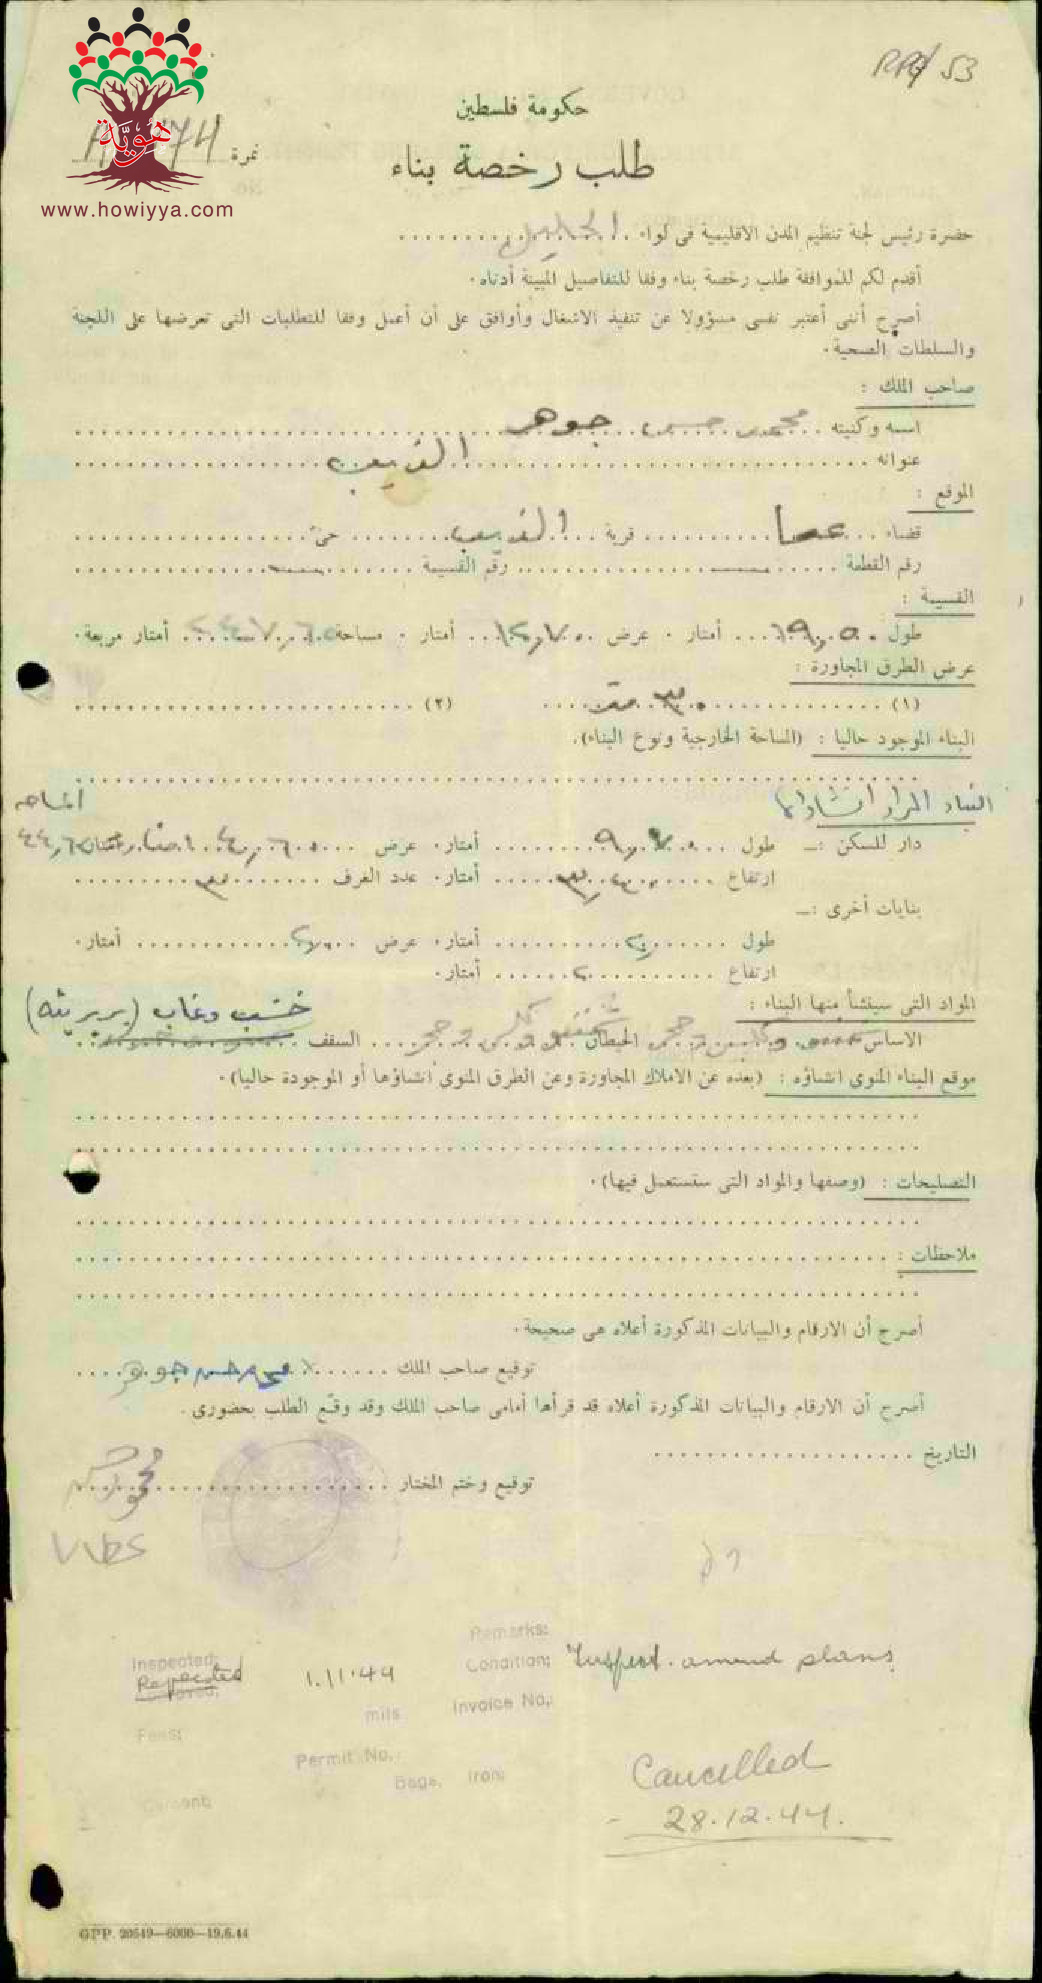 RP4/53
هوية
www.howiyya.com
حكومة فلسطين
نمرة 74
طلب رخصة بناء
حضرة رئيس لجنة تنظيم المدن الاقليمية فى لواء الجليل
أقدم لكم للموافقة طلب رخصة بناء وفقا للتفاصيل المبينة أدناه.
أصرح أننى أعتبر نفسى مسؤولا عن تنفيذ الاشغال وأوافق على أن أعمل وفقا للمتطلبات التى تعرضها على اللجنة
والسلطات الصحية.
صاحب الملك :
اسمه وكنيته محمد حسن جوهر
عنوانه الزيب
الموقع :
قضاء عكا قرية الزيب حى
رقم القطعة — رقم القسيمة —
القسيمة :
طول ١٩,٥٠ أمتار . عرض ١٢,٧٠ أمتار . مساحة أمتار مربعة.
عرض الطرق المجاورة :
(١) ٣,٥٠ متر (٢)
البناء الموجود حاليا : (المساحة الخارجية ونوع البناء).
البناء المراد انشاؤها المساحه
دار للسكن :— طول ٩,٧٠ أمتار. عرض ٤,٦٠ أمتار ٤٤,٦٢
ارتفاع ٣,٤٠ أمتار. عدد الغرف ٣
بنايات أخرى :—
طول أمتار. عرض أمتار.
ارتفاع أمتار.
المواد التى سينشأ منها البناء : خشب وغاب (بربريثه)
الاساس وحجر الحيطان وحجر السقف
موقع البناء المنوى انشاؤه : (بعده عن الاملاك المجاورة وعن الطرق المنوى انشاؤها أو الموجودة حاليا).
التصليحات : (وصفها والمواد التى ستستعمل فيها).
ملاحظات :
أصرح أن الارقام والبيانات المذكورة أعلاه هى صحيحة.
توقيع صاحب الملك محمد حسن جوهر
أصرح أن الارقام والبيانات المذكورة أعلاه قد قرأها أمامى صاحب الملك وقد وقّع الطلب بحضورى.
التاريخ
توقيع وختم المختار
Remarks:
Inspected: 1.11.44 Condition: Inspect. amend plans
Rejected
mils Invoice No.:
Fees:
Permit No.
Bags. Iron:
Cement:
Cancelled
28.12.44.
GPP. 20549—6000—19.6.44